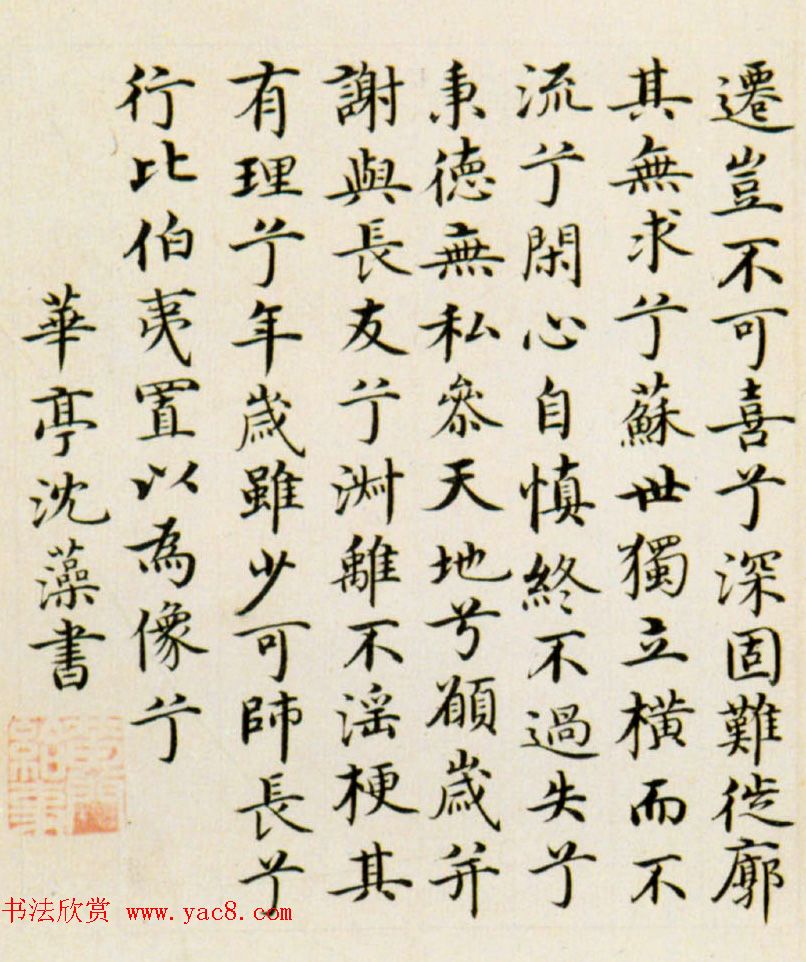 遷豈不可喜兮深固難徙廓
其無求兮蘇世獨立橫而不
流兮閑心自慎終不過失兮
秉德無私叅天地兮願歲并
謝與長友兮淑離不淫梗其
有理兮年歲雖少可師長兮
行比伯夷置以為像兮
華亭沈藻書
书法欣赏 www.yac8.com